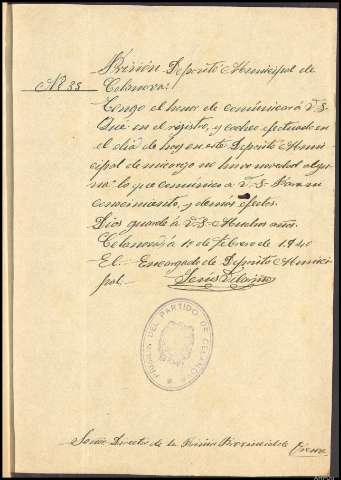 Prisión Deposito Municipal de
Nº 35
Celanova:
Tengo el honor de comunicar á V.S.
Que en el registro, y cacheo efectuado en
el dia de hoy en este Depósito Muni
cipal de mi cargo no hubo novedad algu
na lo que comunico a V.S. Para su
conocimiento, y demás efectos.
Dios guarde á V.S. Muchos años.
Celanova á 10 de febrero de 1940
El Encargado de Deposito Munici
pal.
Jesús
PRISION DEL PARTIDO DE CELANOVA
Señor Director de la Prisión Provincial de Orense